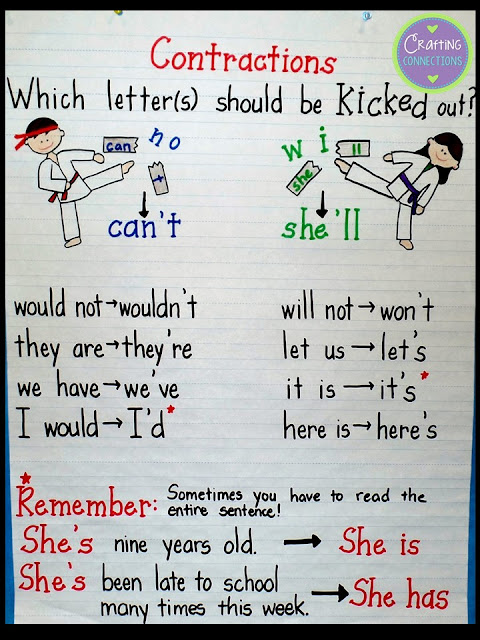 Crafting
CONNECTIONS
Contractions
Which letter(s) should be Kicked out?
can no t
can't
w i ll she
she'll
would not→wouldn't
they are→they're
we have→we've
I would→I'd*
will not→won't
let us→let's
it is→it's*
here is→here's
*
Remember: Sometimes you have to read the
entire sentence!
She's nine years old. → She is
She's been late to school
many times this week. → She has